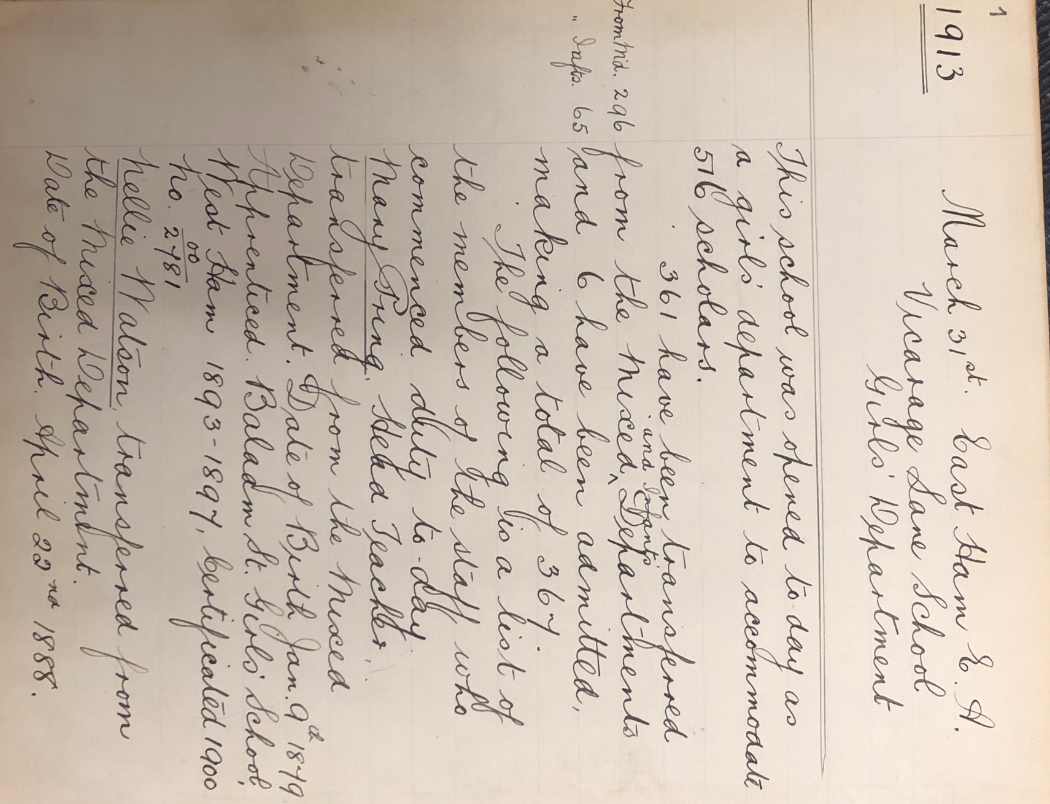 1
1913
March 31st. East Ham E. A.
Vicarage Lane School
Girls' Department
This school was opened to-day as
a girls' department to accommodate
516 scholars.
361 have been transferred
and Infants
From Md. 296 from the Mixed ^ Departments
" Infts. 65 and 6 have been admitted,
making a total of 367.
The following is a list of
the members of the staff who
commenced duty to-day
Mary Pring. Head Teacher.
transferred from the Mixed
Department. Date of Birth Jan. 9th 1879
Apprenticed Balaam St. Girls' School
West Ham 1893-1897, Certificated 1900
No. 00/2481
Nellie Watson, transferred from
the Mixed Department.
Date of Birth. April 22nd 1888.